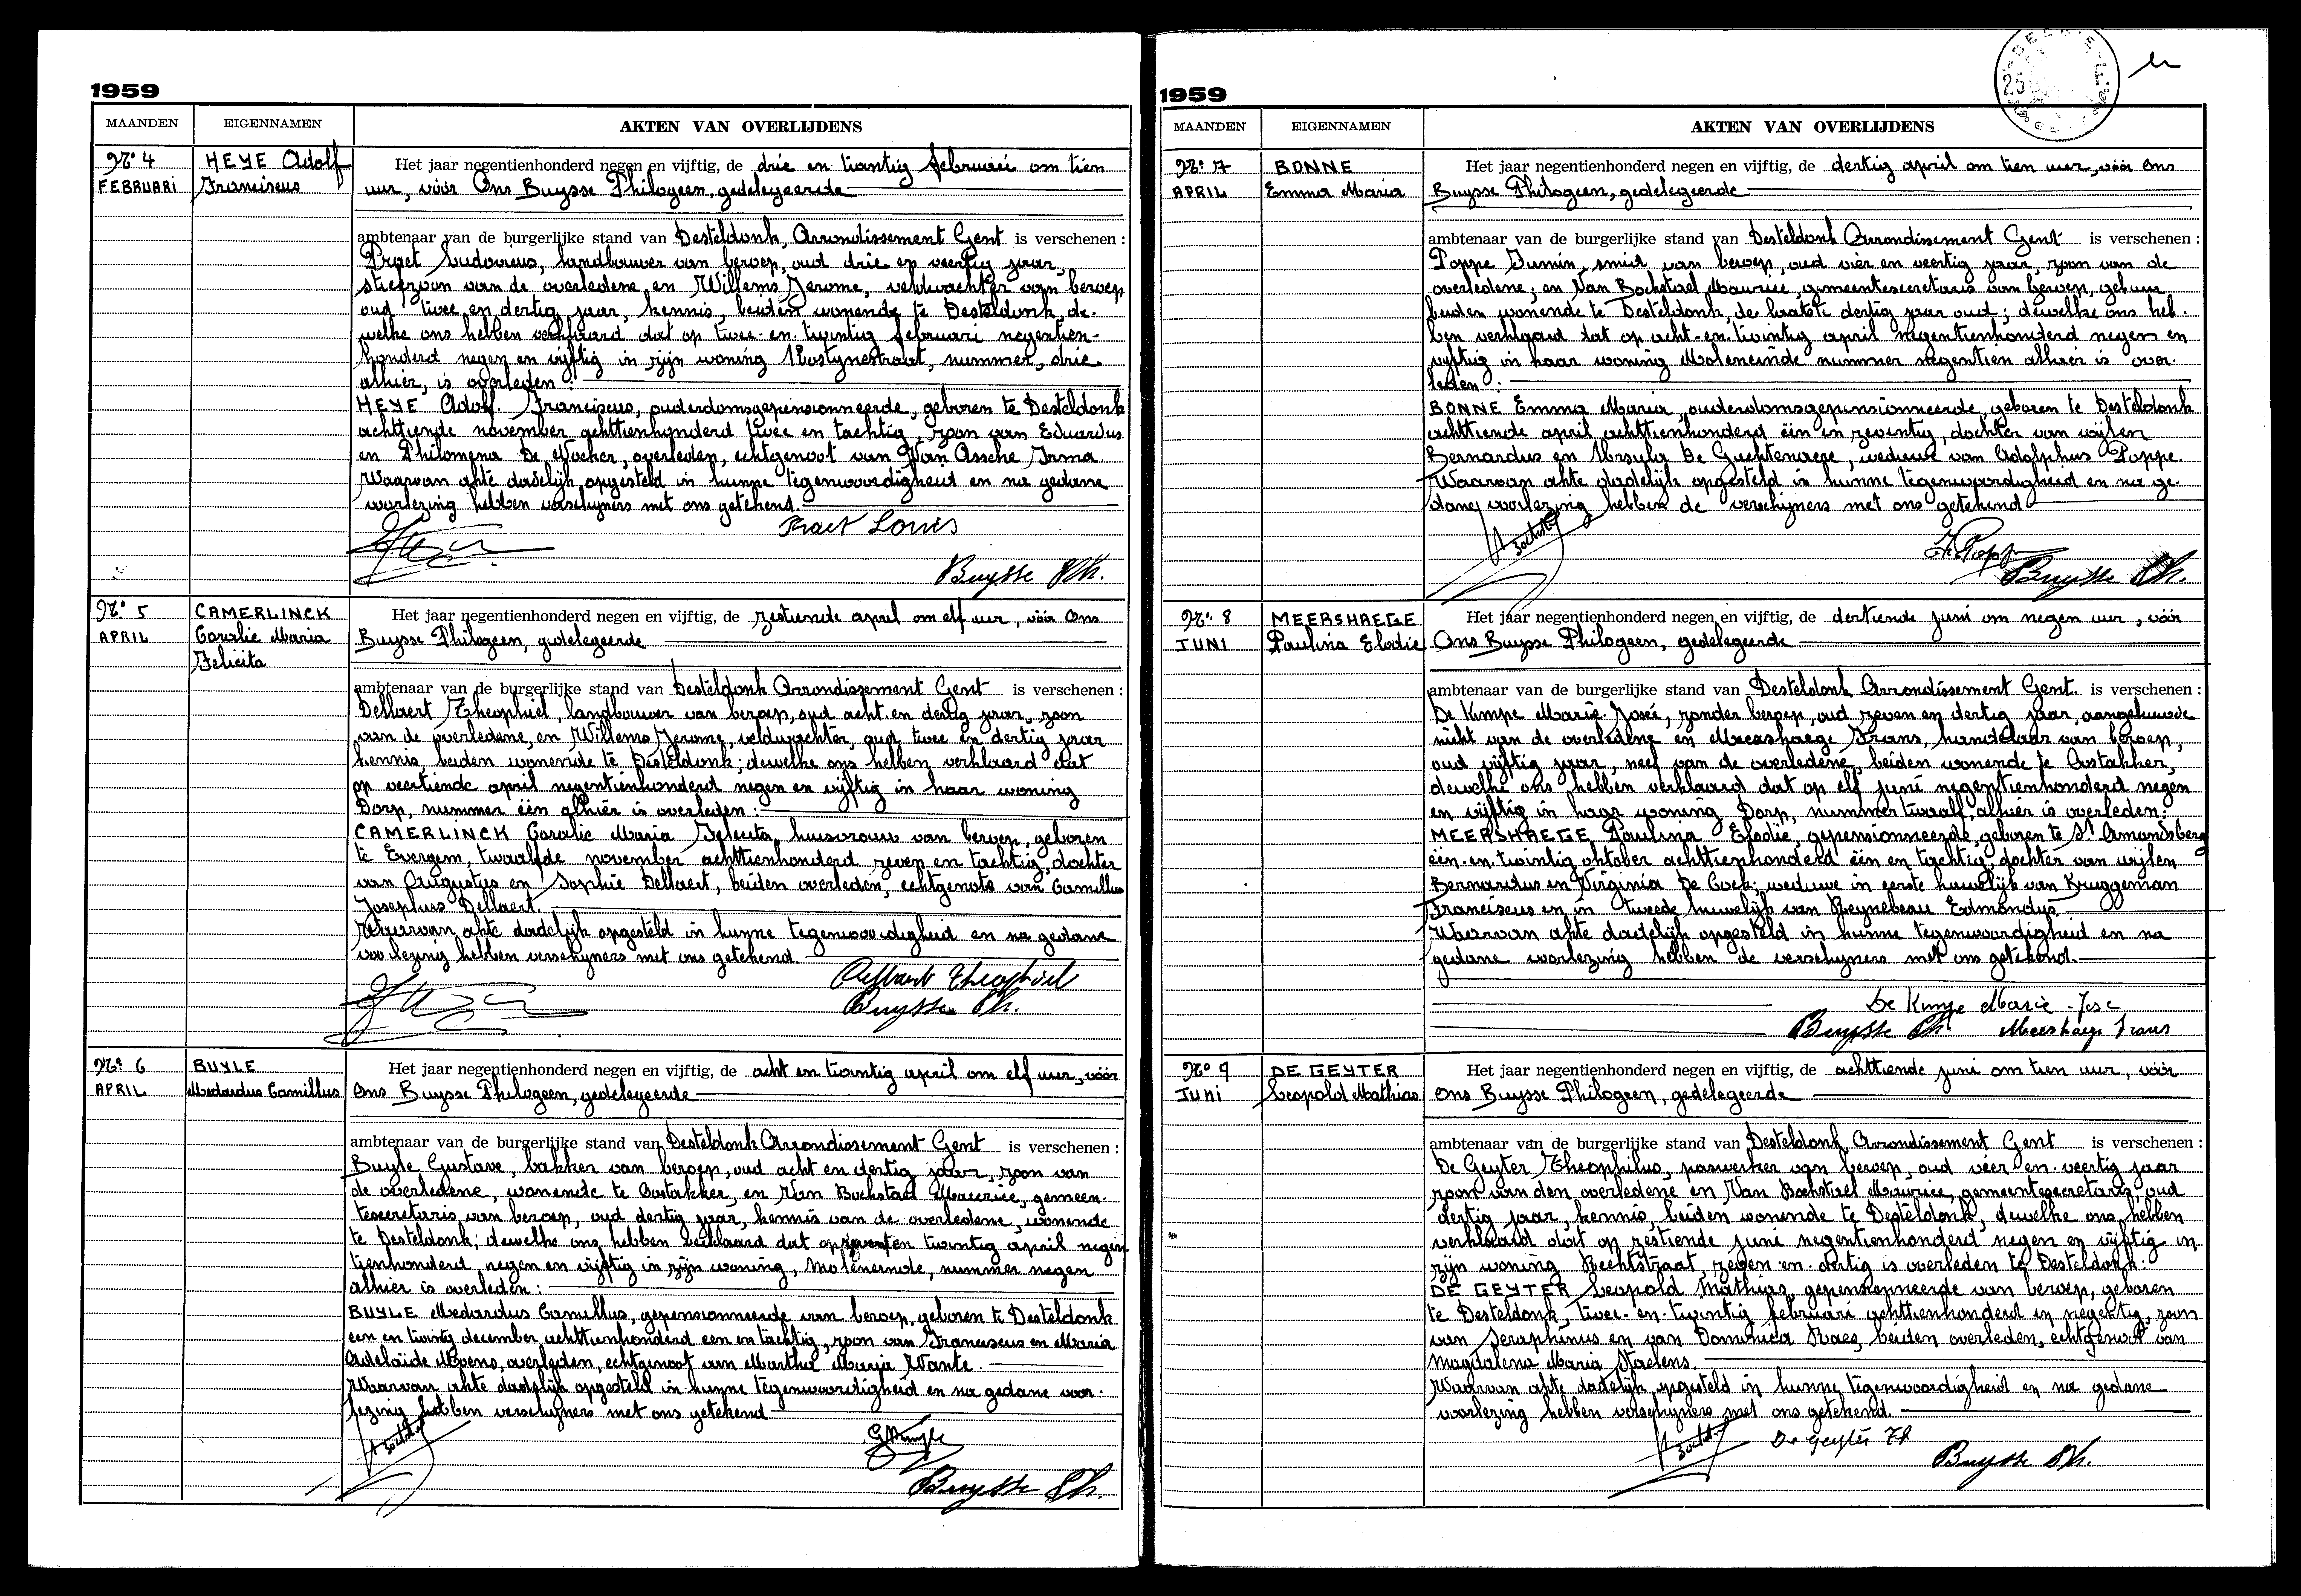 1959
MAANDEN EIGENNAMEN AKTEN VAN OVERLIJDENS
Nr. 4 HEYE Adolf Het jaar negentienhonderd negen en vijftig, de drie en twintig februari om tien
FEBRUARI Franciscus uur, vóór Ons Buysse Philogeen, gedelegeerde
ambtenaar van de burgerlijke stand van Desteldonk, Arrondissement Gent is verschenen :
Praet Ludovicus, landbouwer van beroep, oud drie en veertig jaar,
stiefzoon van de overledene en Willems Jerome, veldwachter van beroep
oud twee en dertig jaar, kennis, beiden wonende te Desteldonk de-
welke ons hebben verklaard dat op twee-en-twintig februari negentien-
honderd negen en vijftig in zijn woning straat, nummer, drie
alhier, is overleden :
HEYE Adolf Franciscus, ouderdomsgepensionneerde, geboren te Desteldonk
achttiende november achttienhonderd twee en tachtig, zoon van Eduardus
en Philomena De Wocker, overleden, echtgenoot van Van Assche Irma
Waarvan akte dadelijk opgesteld in hunne tegenwoordigheid en na gedane
voorlezing hebben verschijners met ons getekend.
Praet Louis
Buysse Ph.
Nr. 5 CAMERLINCK Het jaar negentienhonderd negen en vijftig, de zestiende april om elf uur, vóór Ons
APRIL Coralie Maria Buysse Philogeen, gedelegeerde
Felicita
ambtenaar van de burgerlijke stand van Desteldonk Arrondissement Gent is verschenen :
Dellaert Theophiel, landbouwer van beroep, oud acht en dertig jaar, zoon
van de overledene, en Willems Jerome, veldwachter, oud twee en dertig jaar
kennis, beiden wonende te Desteldonk; dewelke ons hebben verklaard dat
op veertiende april negentienhonderd negen en vijftig in haar woning
Dorp, nummer één alhier is overleden :
CAMERLINCK Coralie Maria Felicita, huisvrouw van beroep, geboren
te Evergem, twaalfde november achttienhonderd zeven en tachtig, dochter
van Augustus en Sophie Dellaert, beiden overleden, echtgenote van Camillus
Josephus Dellaert.
Waarvan akte dadelijk opgesteld in hunne tegenwoordigheid en na gedane
voorlezing hebben verschijners met ons getekend.
Dellaert Theophiel
Buysse Ph.
Nr. 6 BUYLE Het jaar negentienhonderd negen en vijftig, de acht en twintig april om elf uur, vóór
APRIL Medardus Camillus Ons Buysse Philogeen, gedelegeerde
ambtenaar van de burgerlijke stand van Desteldonk Arrondissement Gent is verschenen :
Buyle Gustave, bakker van beroep, oud acht en dertig jaar, zoon van
de overledene, wonende te Oostakker, en Van Bockstael Maurice, gemeen-
tesecretaris van beroep, oud dertig jaar, kennis van de overledene, wonende
te Desteldonk; dewelke ons hebben verklaard dat op zeven en twintig april negen
tienhonderd negen en vijftig in zijn woning, Moleneinde, nummer negen
alhier is overleden :
BUYLE Medardus Camillus, gepensionneerde van beroep, geboren te Desteldonk
een en twintig december achttienhonderd een en tachtig, zoon van Franciscus en Maria
Adelaïde Mvens, overleden, echtgenoot van Martha Maria Wante.
Waarvan akte dadelijk opgesteld in hunne tegenwoordigheid en na gedane voor-
lezing hebben verschijners met ons getekend
GBuyle
Buysse Ph.
1959
MAANDEN EIGENNAMEN AKTEN VAN OVERLIJDENS
Nr. 7 BONNE Het jaar negentienhonderd negen en vijftig, de dertig april om tien uur, vóór Ons
APRIL Emma Maria Buysse Philogeen, gedelegeerde
ambtenaar van de burgerlijke stand van Desteldonk Arrondissement Gent is verschenen :
Poppe Irmin, smid van beroep, oud vier en veertig jaar, zoon van de
overledene; en Van Bockstael Maurice, gemeentesecretaris van beroep, gebuur
beiden wonende te Desteldonk, de laatste dertig jaar oud; dewelke ons heb-
ben verklaard dat op acht-en-twintig april negentienhonderd negen en
vijftig in haar woning Moleneinde nummer negentien alhier is over-
leden :
BONNE Emma Maria, ouderdomsgepensionneerde, geboren te Desteldonk
achttiende april achttienhonderd één en zeventig, dochter van wijlen
Bernardus en Ursula De Guchtenaere, weduwe van Adolphus Poppe.
Waarvan akte dadelijk opgesteld in hunne tegenwoordigheid en na ge
dane voorlezing hebben de verschijners met ons getekend
Buysse Ph.
Nr. 8 MEERSHAEGE Het jaar negentienhonderd negen en vijftig, de dertiende juni om negen uur, vóór
JUNI Paulina Elodie Ons Buysse Philogeen, gedelegeerde
ambtenaar van de burgerlijke stand van Desteldonk Arrondissement Gent. is verschenen :
De Kimpe Marie-José, zonder beroep, oud zeven en dertig jaar, aangehuwde
nicht van de overledene en Meershaege Frans, handelaar van beroep,
oud vijftig jaar, neef van de overledene, beiden wonende te Oostakker,
dewelke ons hebben verklaard dat op elf juni negentienhonderd negen
en vijftig in haar woning Dorp, nummer twaalf, alhier is overleden:
MEERSHAEGE Paulina Elodie, gepensionneerde, geboren te St Amandsberg
één-en-twintig oktober achttienhonderd één en tachtig, dochter van wijlen
Bernardus en Virginia De Cock; weduwe in eerste huwelijk van Bruggeman
Franciscus en in tweede huwelijk van Reynebeau Edmondus
Waarvan akte dadelijk opgesteld in hunne tegenwoordigheid en na
gedane voorlezing hebben de verschijners met ons getekend.
De Kimpe Marie-José
Buysse Ph. Meershaege Frans
Nr. 9 DE GEYTER Het jaar negentienhonderd negen en vijftig, de achttiende juni om tien uur, vóór
JUNI Leopold Mathias Ons Buysse Philogeen, gedelegeerde
ambtenaar van de burgerlijke stand van Desteldonk Arrondissement Gent is verschenen :
De Geyter Theophilus, paswerker van beroep, oud vier-en-veertig jaar
zoon van den overledene en Van Bockstael Maurice, gemeentesecretaris, oud
dertig jaar, kennis, beiden wonende te Desteldonk, dewelke ons hebben
verklaard dat op zestiende juni negentienhonderd negen en vijftig in
zijn woning Rechtstraat, zeven-en-dertig is overleden te Desteldonk:
DE GEYTER Leopold Mathias, gepensionneerde van beroep, geboren
te Desteldonk, twee-en-twintig februari achttienhonderd en negentig, zoon
van Seraphinus en van Dominica Raes, beiden overleden, echtgenoot van
Magdalena Maria Staelens.
Waarvan akte dadelijk opgesteld in hunne tegenwoordigheid en na gedane
voorlezing hebben verschijners met ons getekend.
De Geyter Th
Buysse Ph.